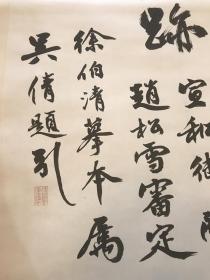 跡
宣和御
趙松雪審定
徐伯清摹本屬
吳倩題引